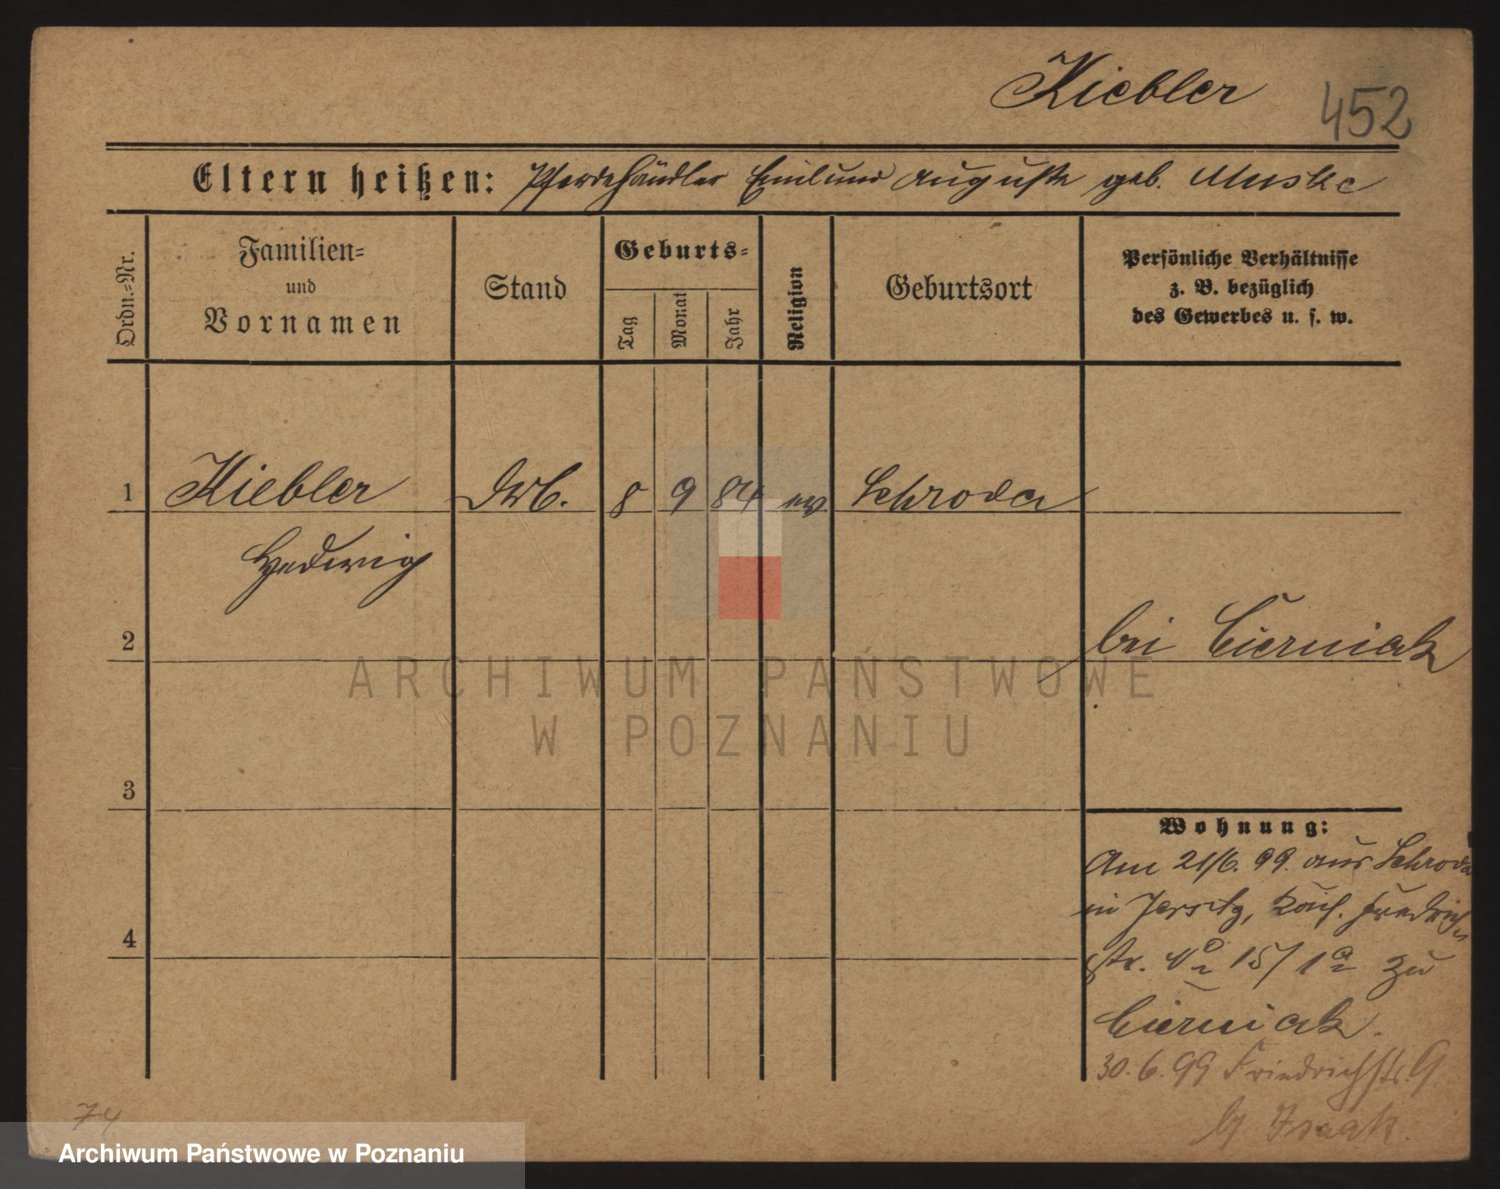 Kiebler
452
Eltern heißen: Pferdehändler Emil und Auguste geb. Muske
Ordn.-Nr.
Familien-
und
Vornamen
Stand
Geburts-
Tag
Monat
Jahr
Religion
Geburtsort
Persönliche Verhältnisse
z. B. bezüglich
des Gewerbes u. s. w.
1 Kiebler 8 9 84 ev Schroda
Hedwig
2 bei Cierniak
3
Wohnung:
Am 21/6. 99. aus Schroda
in Jersitz, Kais. Friedrich
4
str. No 15/1a zu
Cierniak.
30.6.99 Friedrichstr. 9
b/ Isaak.
74
ARCHIWUM PAŃSTWOWE
W POZNANIU
Archiwum Państwowe w Poznaniu